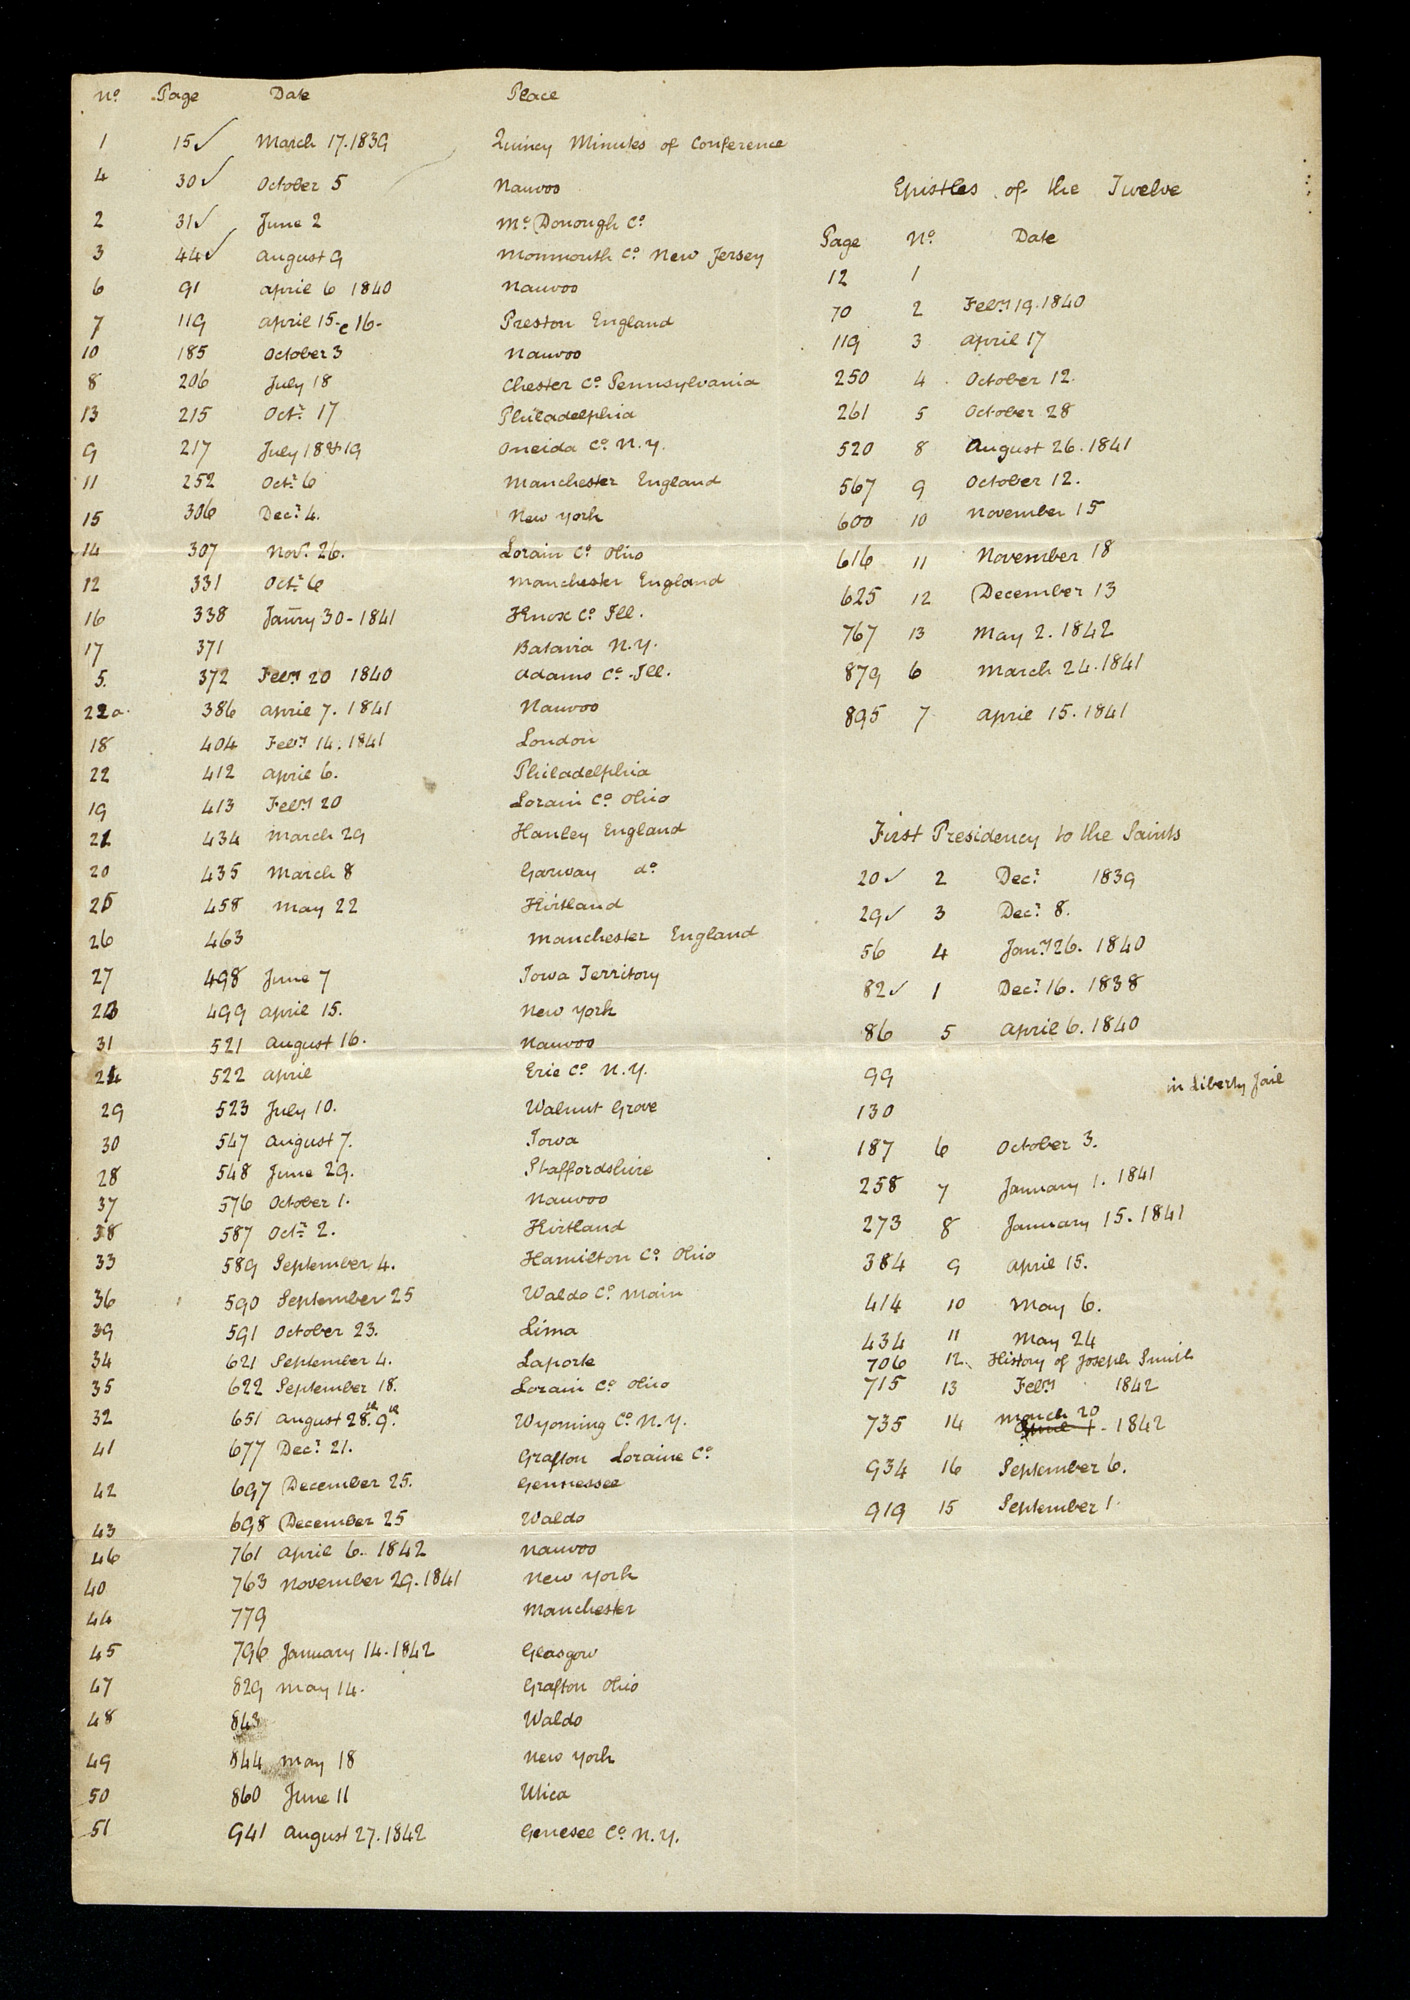 No. Page Date Place
1 15✓ March 17. 1839 Quincy Minutes of Conference
4 30✓ October 5 Nauvoo
2 31✓ June 2 Mc. Donough Co.
3 44✓ August 9 Monmouth Co. New Jersey
6 91 April 6 1840 Nauvoo
7 119 April 15- & 16- Preston England
10 185 October 3 Nauvoo
8 206 July 18 Chester Co. Pennsylvania
13 215 Octr. 17 Philadelphia
9 217 July 18 & 19 Oneida Co. N.Y.
11 252 Octr. 6 Manchester England
15 306 Decr. 4. New York
14 307 Novr. 26. Lorain Co. Ohio
12 331 Octr. 6 Manchester England
16 338 Janry 30 - 1841 Knox Co. Ill.
17 371 Batavia N.Y.
5. 372 Feby 20 1840 Adams Co. Ill.
22a. 386 April 7. 1841 Nauvoo
18 404 Feby 14. 1841 London
22 412 April 6. Philadelphia
19 413 Feby 20 Lorain Co. Ohio
21 434 March 29 Hanley England
20 435 March 8 Garway do.
25 458 May 22 Kirtland
26 463 Manchester England
27 498 June 7 Iowa Territory
23 499 April 15. New York
31 521 August 16. Nauvoo
24 522 April Erie Co. N.Y.
29 523 July 10. Walnut Grove
30 547 August 7. Iowa
28 548 June 29. Staffordshire
37 576 October 1. Nauvoo
38 587 Octr. 2. Kirtland
33 589 September 4. Hamilton Co. Ohio
36 590 September 25 Waldo Co. Main
39 591 October 23. Lima
34 621 September 4. Laporte
35 622 September 18. Lorain Co. Ohio
32 651 August 28th. 9th. Wyoming Co. N.Y.
41 677 Decr. 21. Grafton Loraine Co.
42 697 December 25. Gennessee
43 698 December 25 Waldo
46 761 April 6. 1842 Nauvoo
40 763 November 29. 1841 New York
44 779 Manchester
45 796 January 14. 1842 Glasgow
47 829 May 14. Grafton Ohio
48 843 Waldo
49 844 May 18 New York
50 860 June 11 Utica
51 941 August 27. 1842 Genesee Co. N.Y.
Epistles of the Twelve
Page No. Date
12 1
70 2 Feby 19. 1840
119 3 April 17
250 4. October 12.
261 5 October 28
520 8 August 26. 1841
567 9 October 12.
600 10 November 15
616 11 November 18
625 12 December 13
767 13 May 2. 1842
879 6 March 24. 1841
895 7 April 15. 1841
First Presidency to the Saints
20✓ 2 Decr. 1839
29✓ 3 Decr. 8.
56 4 Jany 26. 1840
82✓ 1 Decr. 16. 1838
86 5 April 6. 1840
99
in Liberty Jail
130
187 6 October 3.
258 7 January 1. 1841
273 8 January 15. 1841
384 9 April 15.
414 10 May 6.
434 11 May 24
706 12. History of Joseph Smith
715 13 Feby 1842
735 14 March 20 - 1842
934 16 September 6.
919 15 September 1.